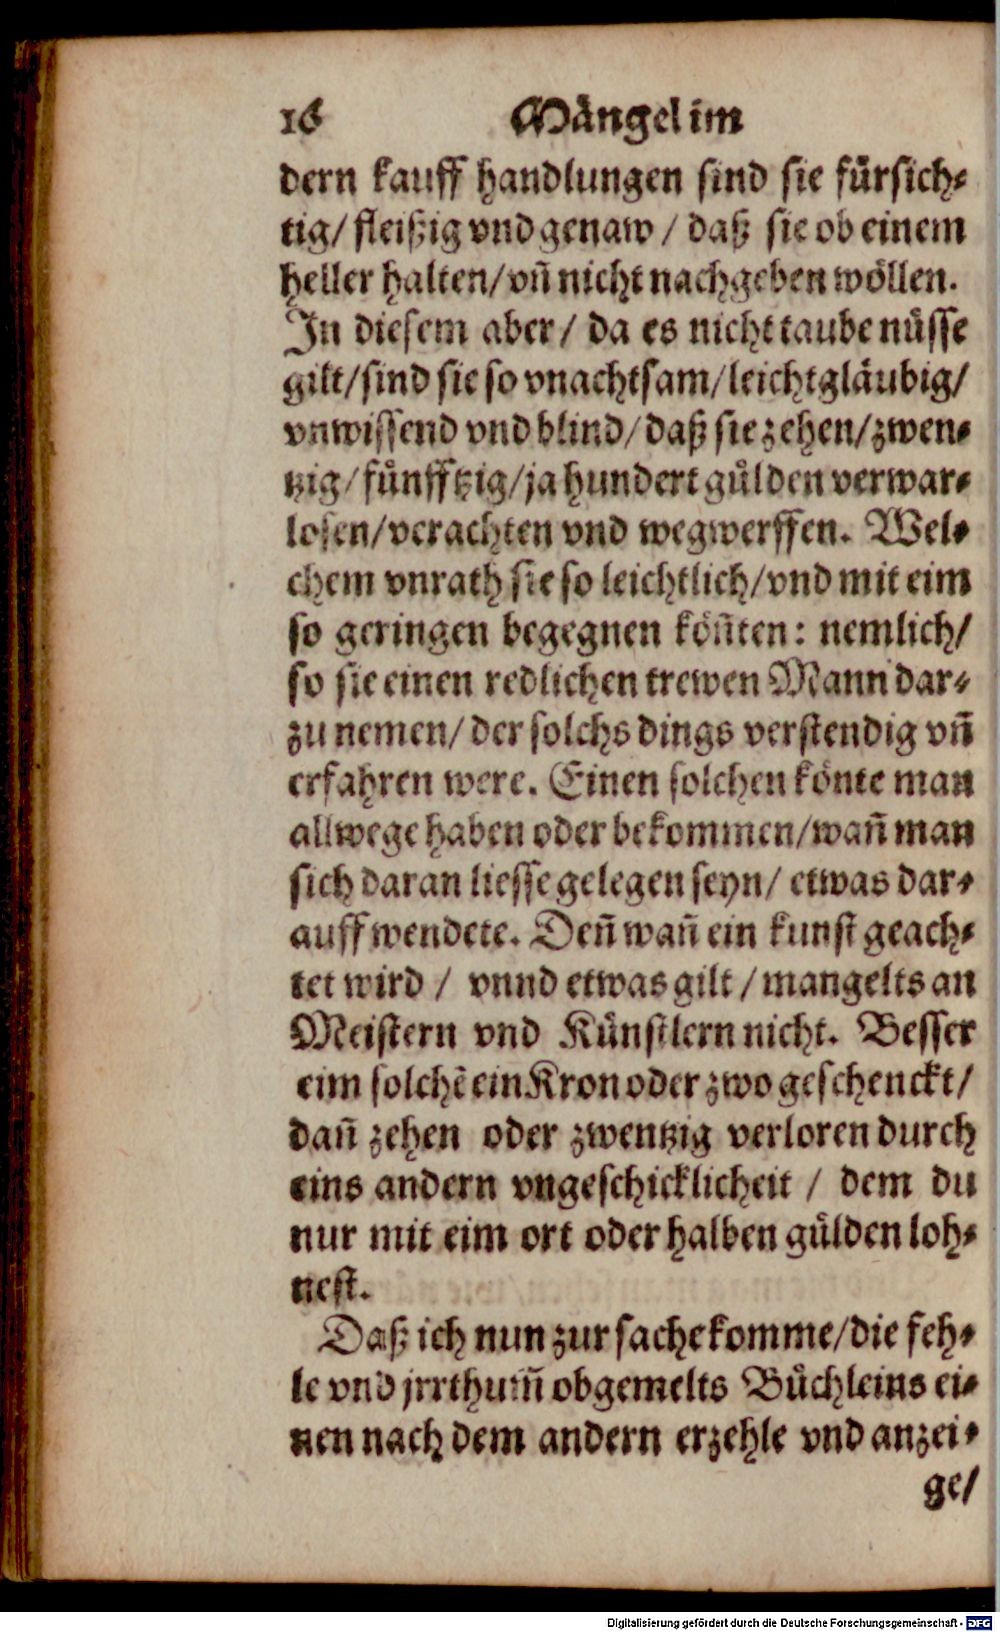 16 Mängel im
dern kauff handlungen sind sie fürsich⸗
tig/ fleißig vnd genaw / daß sie ob einem
heller halten/ vñ nicht nachgeben wöllen.
In diesem aber / da es nicht taube nüsse
gilt/ sind sie so vnachtsam/ leichtgläubig/
vnwissend vnd blind/ daß sie zehen/ zwen⸗
tzig/ fünfftzig/ ja hundert gülden verwar⸗
losen/ verachten vnd wegwerffen. Wel⸗
chem vnrath sie so leichtlich/ vnd mit eim
so geringen begegnen köñten: nemlich/
so sie einen redlichen trewen Mann dar⸗
zu nemen/ der solchs dings verstendig vñ
erfahren were. Einen solchen könte man
allwege haben oder bekommen/ wañ man
sich daran liesse gelegen seyn/ etwas dar⸗
auff wendete. Deñ wañ ein kunst geach⸗
tet wird / vnnd etwas gilt / mangelts an
Meistern vnd Künstlern nicht. Besser
eim solchē ein Kron oder zwo geschenckt/
dañ zehen oder zwentzig verloren durch
eins andern vngeschicklicheit / dem du
nur mit eim ort oder halben gülden loh⸗
nest.
Daß ich nun zur sache komme/ die feh⸗
le vnd jrrthum̃ obgemelts Büchleins ei⸗
nen nach dem andern erzehle vnd anzei⸗
ge/
Digitalisierung gefördert durch die Deutsche Forschungsgemeinschaft - DFG